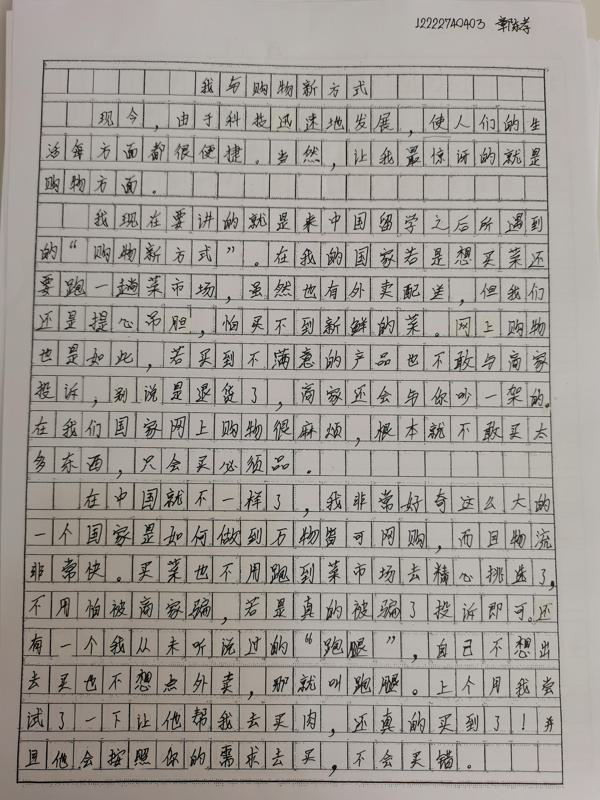 12222740403
我与购物新方式
现今，由于科技迅速地发展，使人们的生
活每方面都很便捷。当然，让我最惊讶的就是
购物方面。
我现在要讲的就是来中国留学之后所遇到
的“购物新方式”。在我的国家若是想买菜还
要跑一趟菜市场，虽然也有外卖配送，但我们
还是提心吊胆，怕买不到新鲜的菜。网上购物
也是如此，若买到不满意的产品也不敢与商家
投诉，别说是退货了，商家还会与你吵一架的。
在我们国家网上购物很麻烦，根本就不敢买太
多东西，只会买必须品。
在中国就不一样了，我非常好奇这么大的
一个国家是如何做到万物皆可网购，而且物流
非常快。买菜也不用跑到菜市场去精心挑选了，
不用怕被商家骗，若是真的被骗了投诉即可。还
有一个我从未听说过的“跑腿”，自己不想出
去买也不想点外卖，那就叫跑腿。上个月我尝
试了一下让他帮我去买肉，还真的买到了！并
且他会按照你的需求去买，不会买错。